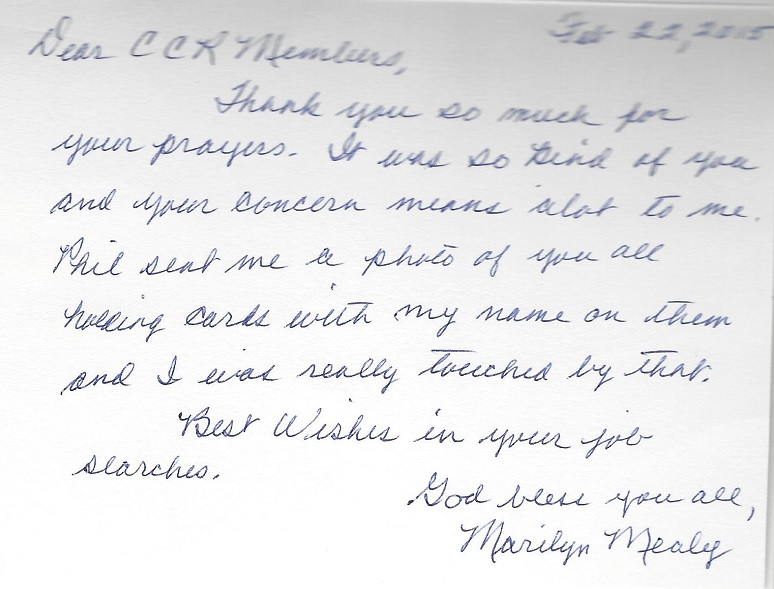 Feb 22, 2015
Dear CCR Members,
Thank you so much for
your prayers. It was so kind of you
and your concern means alot to me.
Phil sent me a photo of you all
holding cards with my name on them
and I was really touched by that.
Best Wishes in your job
searches.
God bless you all,
Marilyn Mealy